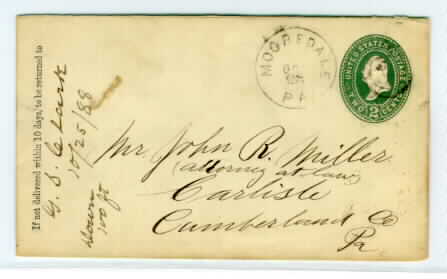 If not delivered within 10 days, to be returned to
G. S. Clark
10/25/88
MOOREDALE
PA
UNITED STATES POSTAGE
2
TWO CENTS
Mr. John R. Miller
(attorney at law)
Carlisle
Cumberland Co
Pa.